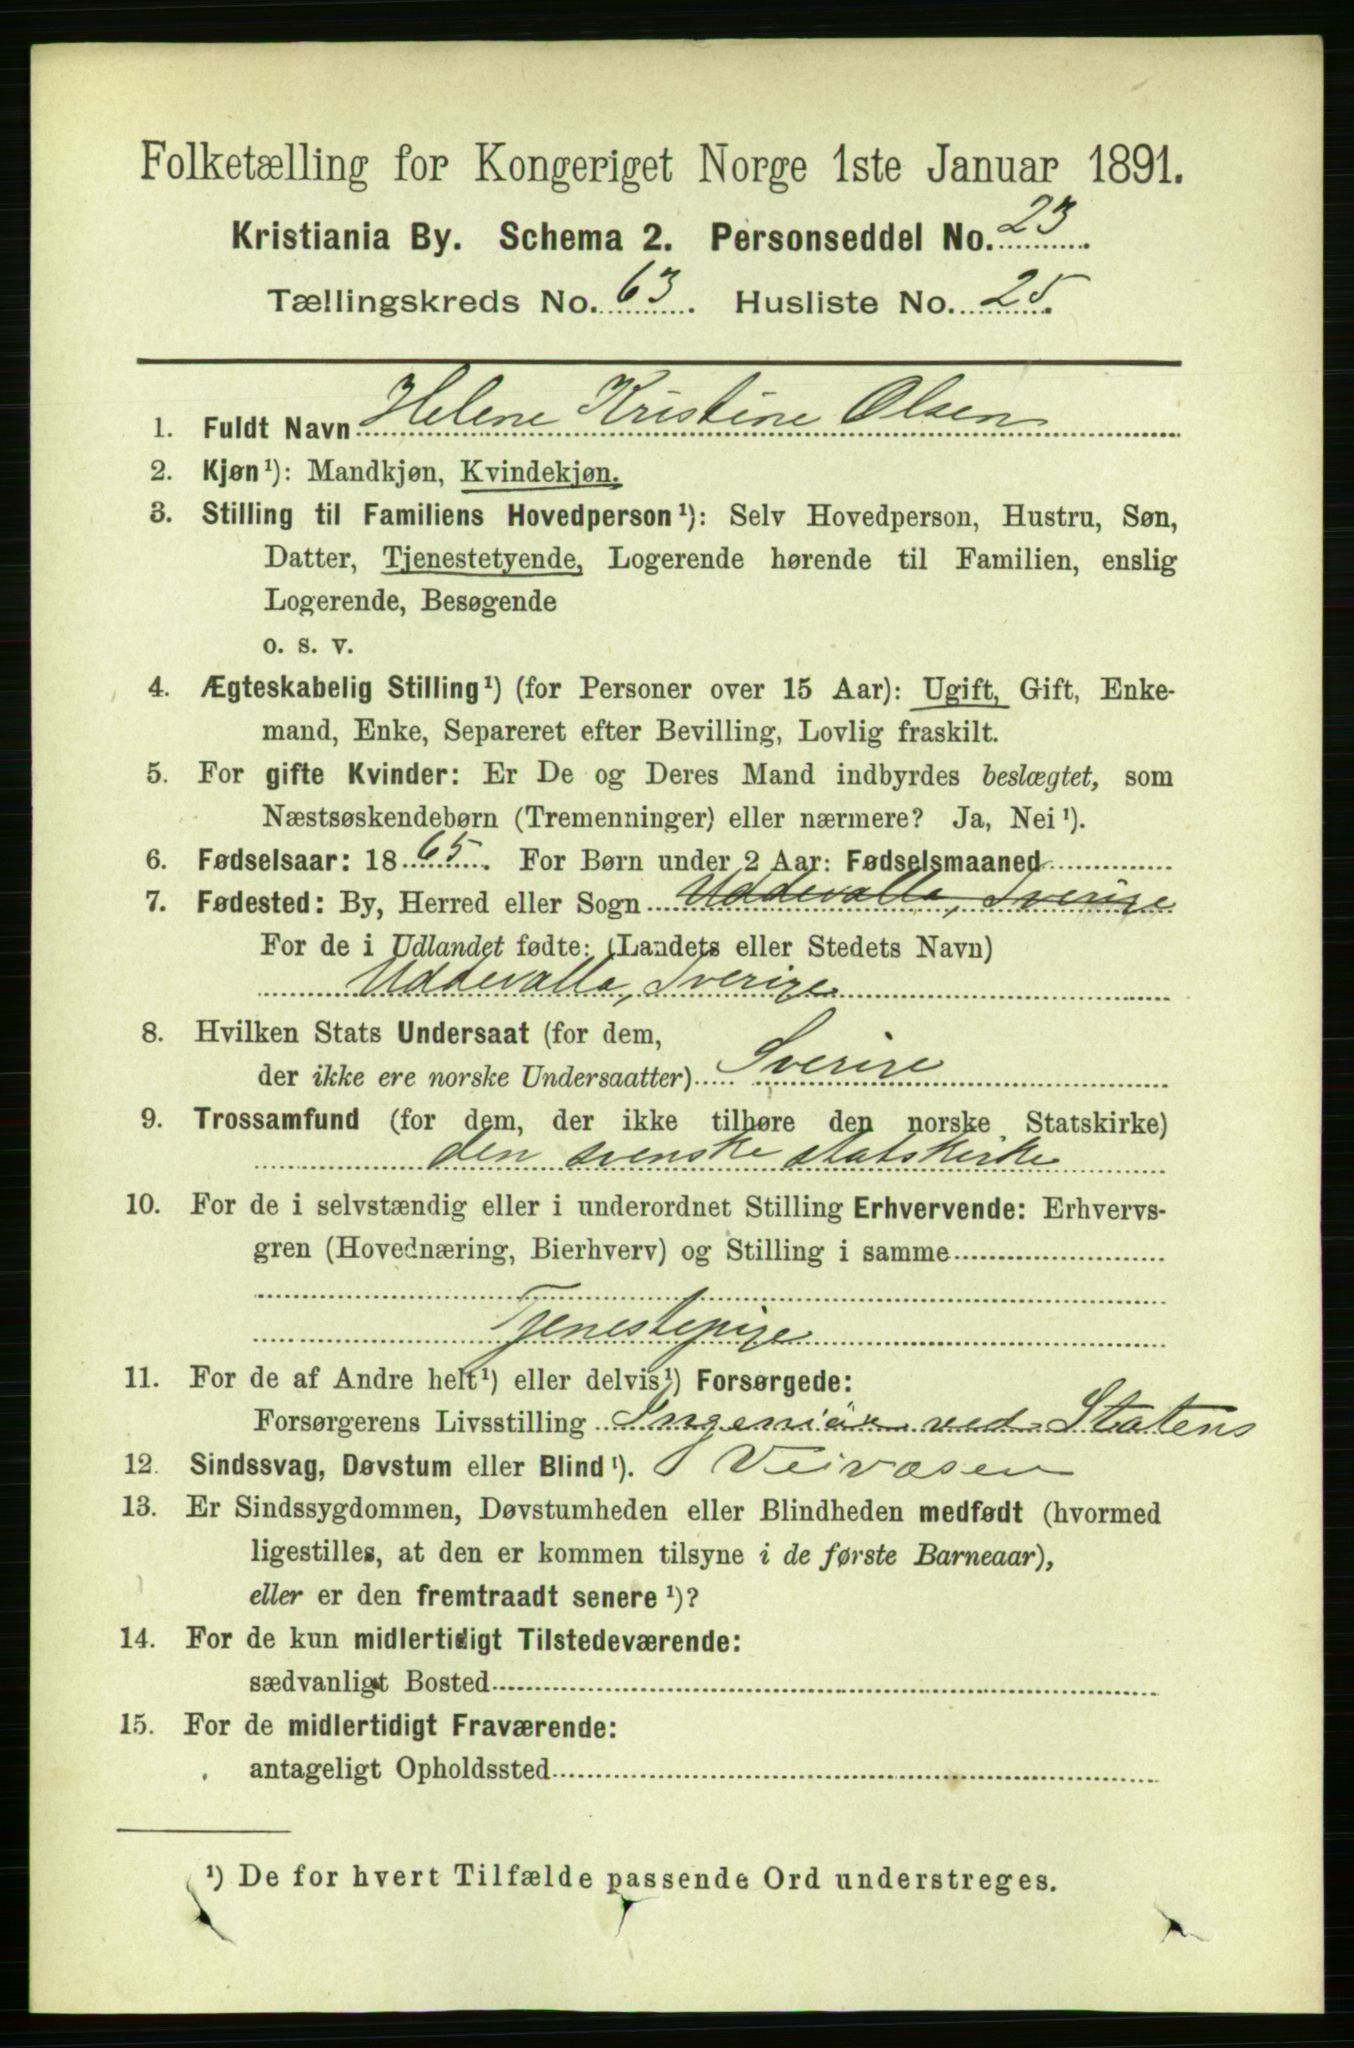 Folketælling for Kongeriget Norge 1ste Januar 1891.
Kristiania By. Schema 2. Personseddel No. 23.
Tællingskreds No. 63. Husliste No. 25.
1. Fuldt Navn Helene Kristine Olsen
2. Kjøn¹): Mandkjøn, Kvindekjøn.
3. Stilling til Familiens Hovedperson¹): Selv Hovedperson, Hustru, Søn,
Datter, Tjenestetyende, Logerende hørende til Familien, enslig
Logerende, Besøgende
o. s. v.
4. Ægteskabelig Stilling¹) (for Personer over 15 Aar): Ugift, Gift, Enke-
mand, Enke, Separeret efter Bevilling, Lovlig fraskilt.
5. For gifte Kvinder: Er De og Deres Mand indbyrdes beslægtet, som
Næstsøskendebørn (Tremenninger) eller nærmere? Ja, Nei¹).
6. Fødselsaar: 1865. For Børn under 2 Aar: Fødselsmaaned
7. Fødested: By, Herred eller Sogn Uddevalla, Sverige
For de i Udlandet fødte: (Landets eller Stedets Navn)
Uddevalla, Sverige
8. Hvilken Stats Undersaat (for dem,
der ikke ere norske Undersaatter) Sverige
9. Trossamfund (for dem, der ikke tilhøre den norske Statskirke)
den svenske statskirke
10. For de i selvstændig eller i underordnet Stilling Erhvervende: Erhvervs-
gren (Hovednæring, Bierhverv) og Stilling i samme
Tjenestepige
11. For de af Andre helt¹) eller delvis¹) Forsørgede:
Forsørgerens Livsstilling Ingeniör ved Statens
12. Sindssvag, Døvstum eller Blind¹). Veivæsen
13. Er Sindssygdommen, Døvstumheden eller Blindheden medfødt (hvormed
ligestilles, at den er kommen tilsyne i de første Barneaar),
eller er den fremtraadt senere¹)?
14. For de kun midlertidigt Tilstedeværende:
sædvanligt Bosted
15. For de midlertidigt Fraværende:
antageligt Opholdssted
¹) De for hvert Tilfælde passende Ord understreges.